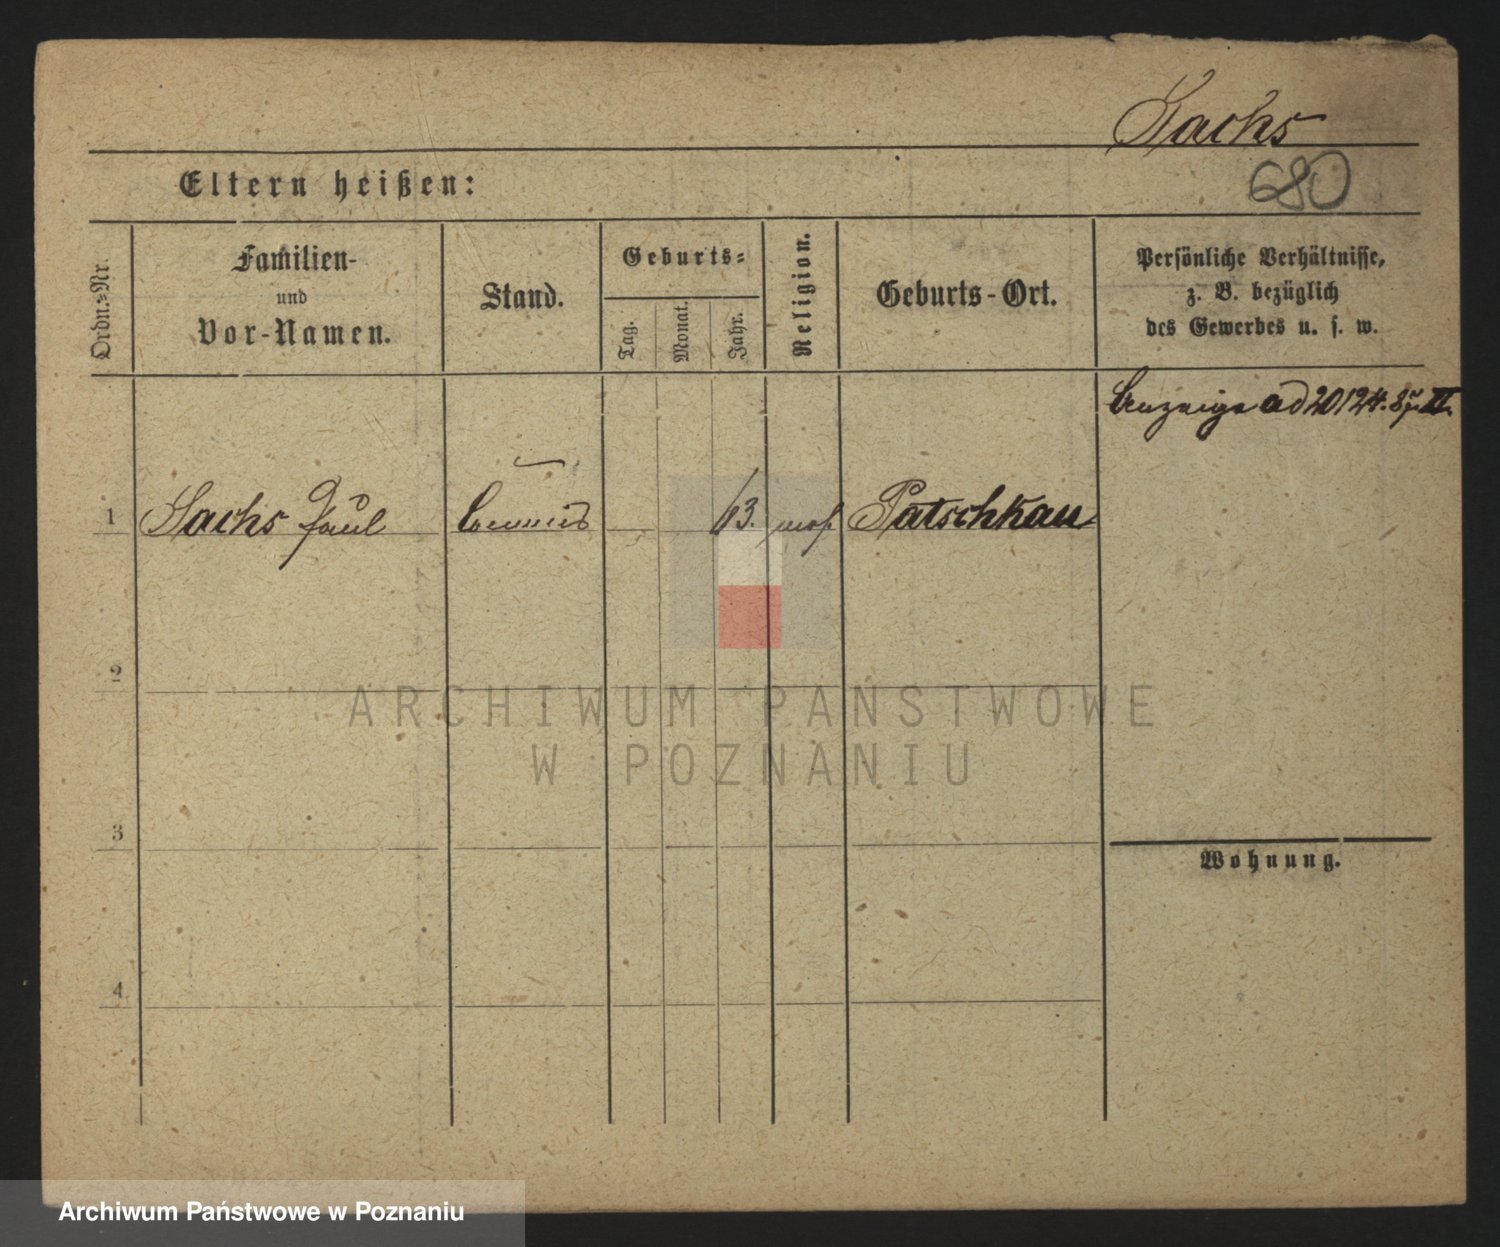 Sachs
680
Eltern heißen:
Ordn.=Nr.
Familien-
und
Vor-Namen.
Stand.
Geburts=
Tag.
Monat.
Jahr.
Religion.
Geburts-Ort.
Persönliche Verhältnisse,
z. B. bezüglich
des Gewerbes u. s. w.
Anzeige ad 20124. 87 II.
1 Sachs Paul Commis 63. mos. Patschkau
2
3
4
Wohnung.
ARCHIWUM PAŃSTWOWE
W POZNANIU
Archiwum Państwowe w Poznaniu